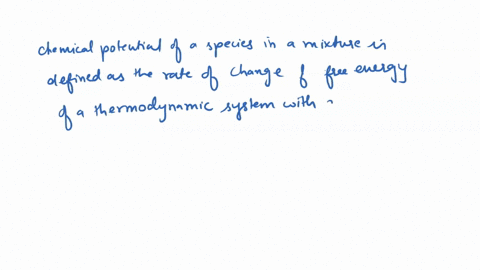 chemical potential of a species in a mixture is
defined as the rate of change of free energy
of a thermodynamic system with